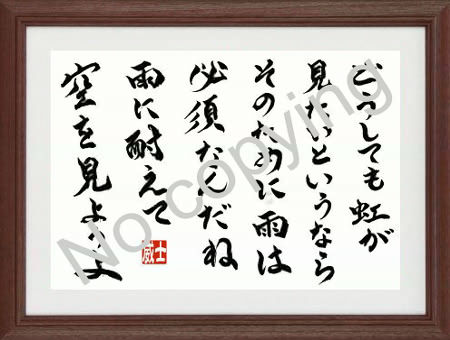 どうしても虹が
見たいというなら
そのために雨は
必須なんだね
雨に耐えて
空を見ようよ
威士
No copying